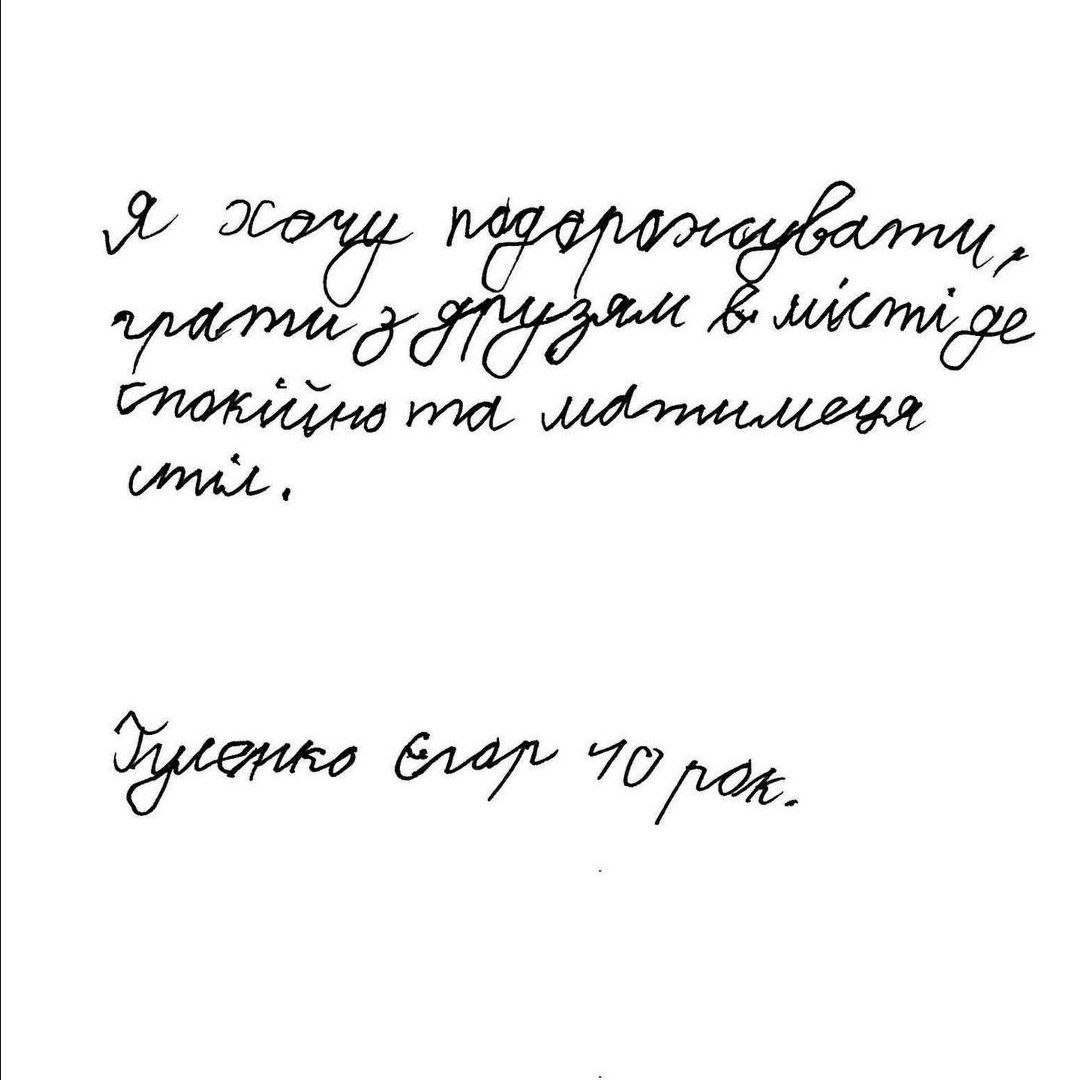 Я хочу подорожувати,
грати з друзям в місті де
спокійно та матимеця
стіл.
Гуленко Єгор 10 рок.